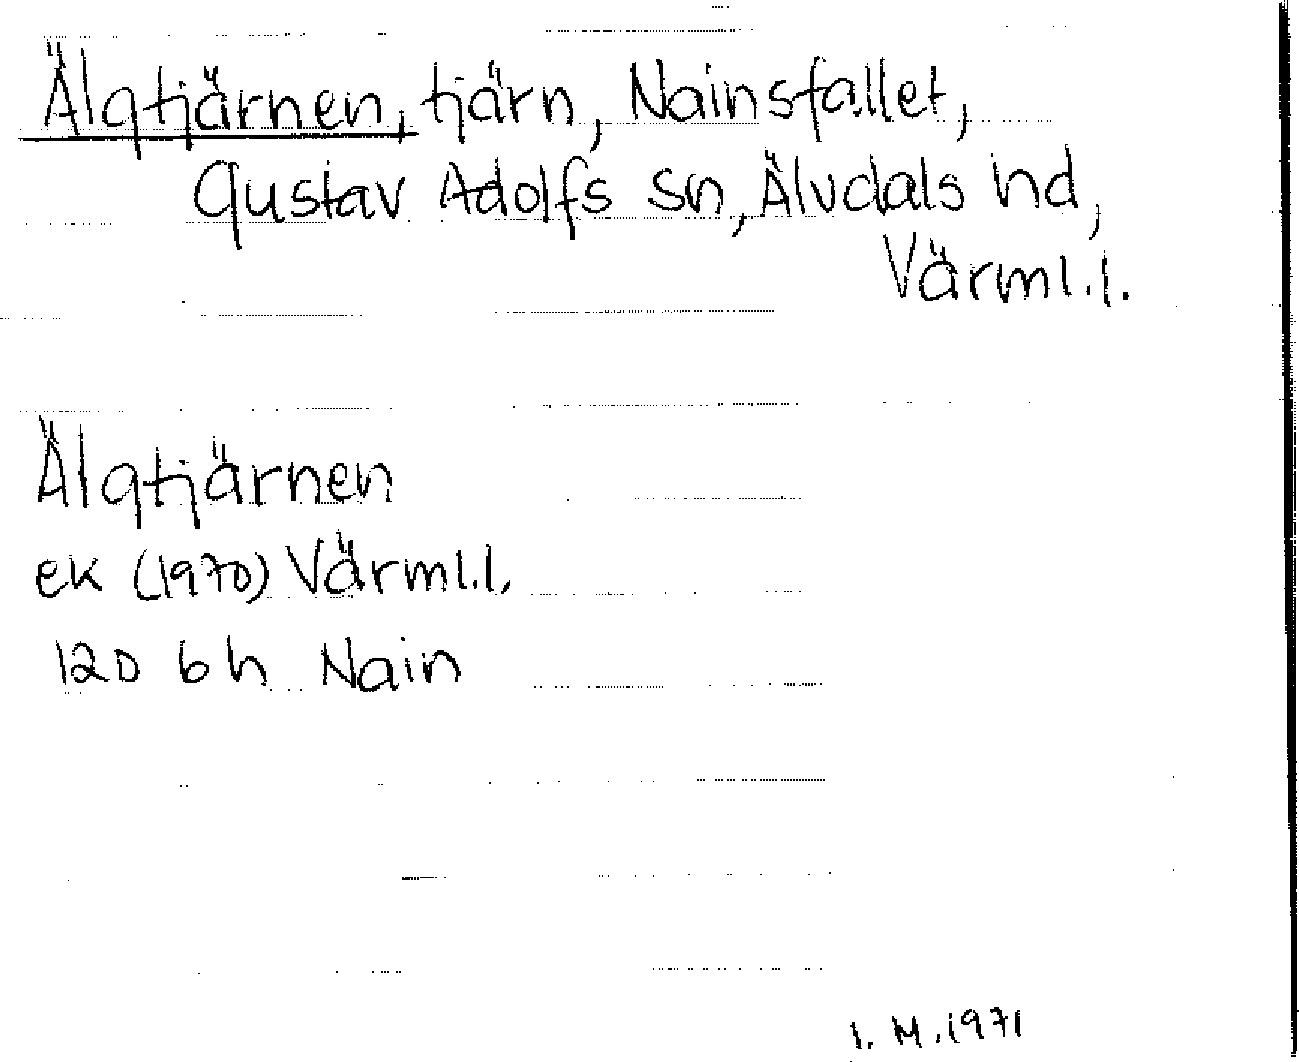 Älgtjärnen, tjärn, Nainsfallet,
Gustav Adolfs sn, Älvdals hd,
Värml.l.
Älgtjärnen
ek (1970) Värml.l.
12D 6h Nain
I. M. 1971